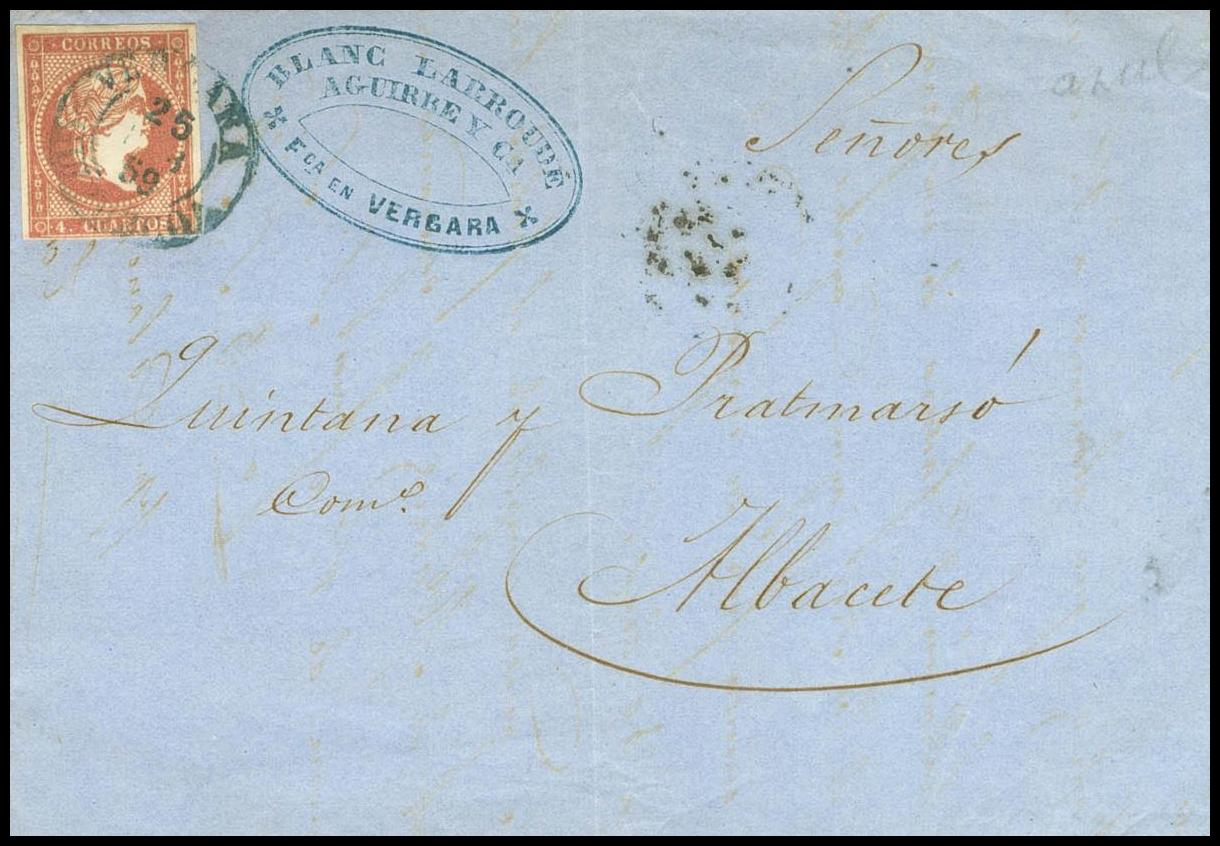 CORREOS
4. CUARTOS
VERGARA
25
59
BLANC LABROUDE
AGUIRRE Y CA
FCA EN VERGARA
azul
Señores
Quintana y Pratmarsó
Comª.
Albacete